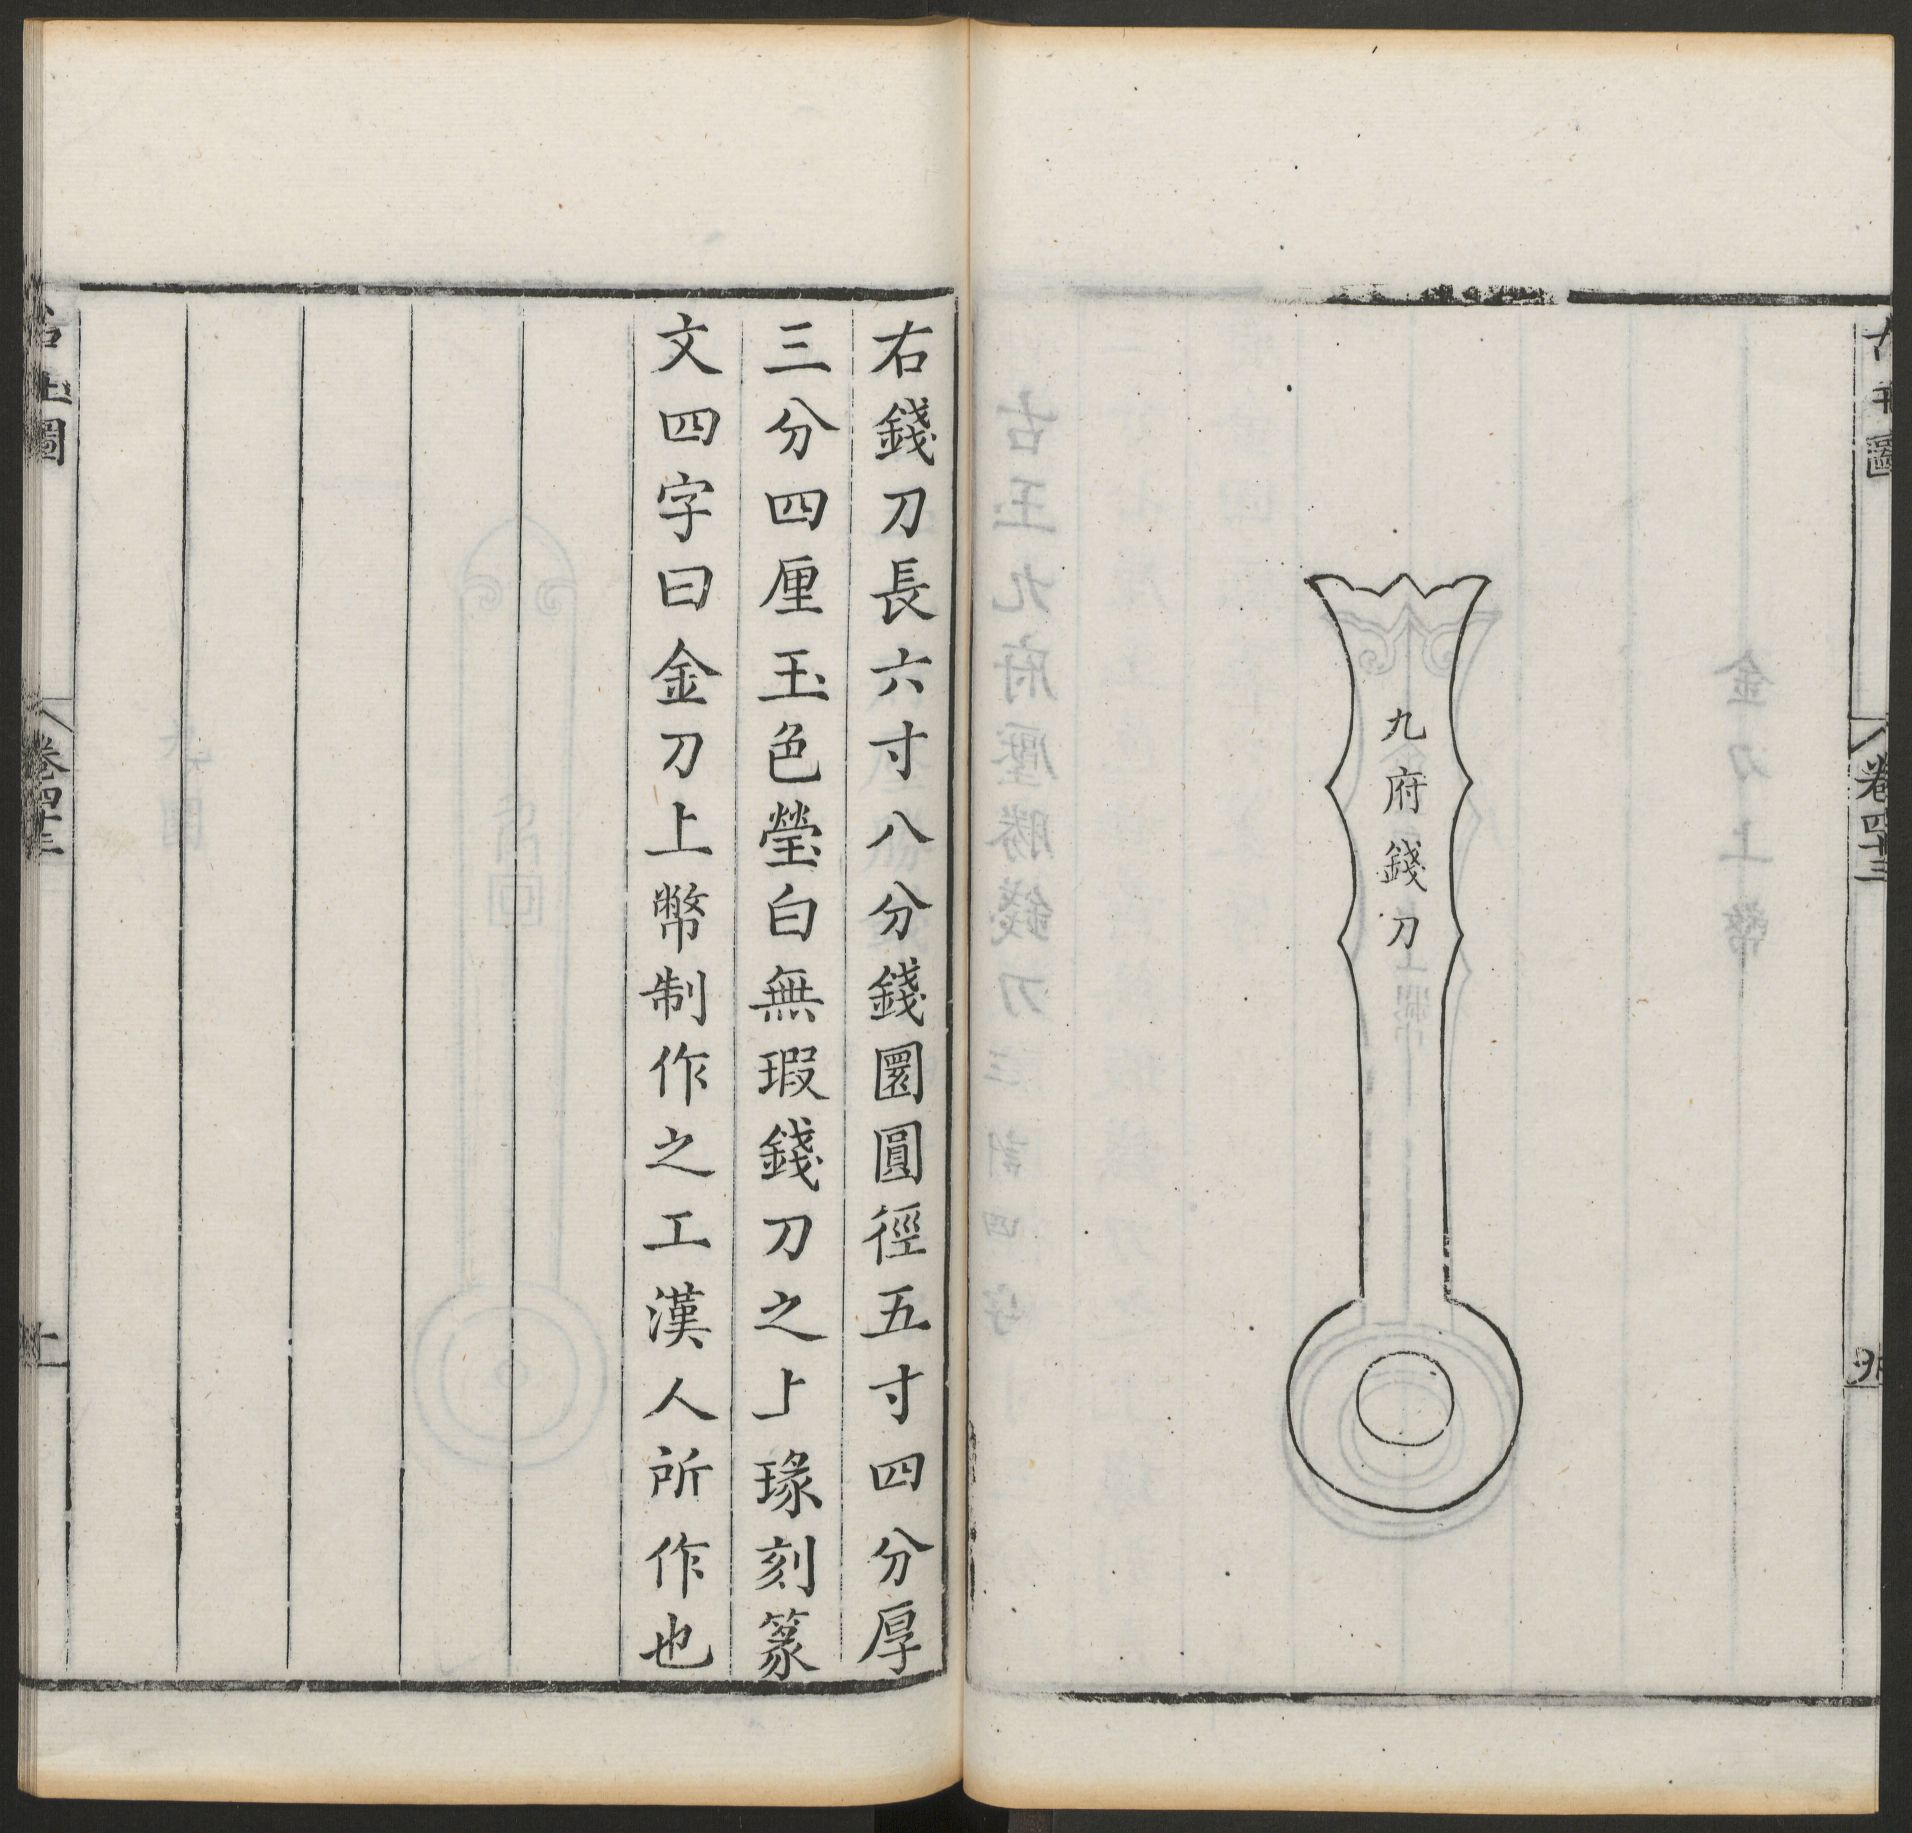 九府錢刀
右錢刀長六寸八分錢圜圓徑五寸四分厚
三分四厘玉色瑩白無瑕錢刀之上瑑刻篆
文四字曰金刀上幣制作之工漢人所作也
卷四十三
卷四十三